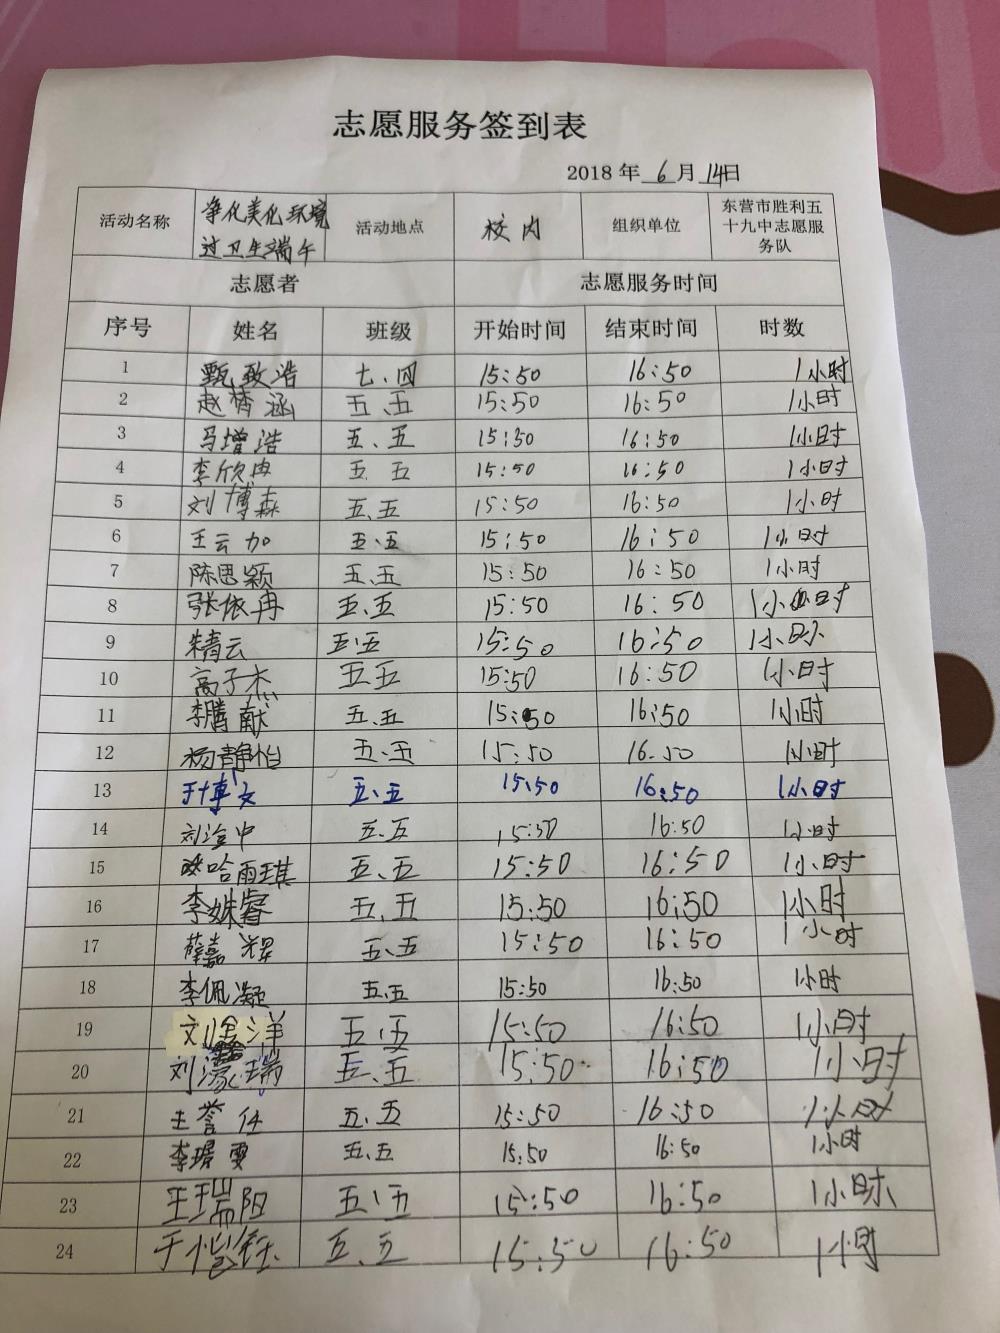 志愿服务签到表
2018 年 6 月 14日
活动名称 净化美化环境 过卫生端午 活动地点 校内 组织单位 东营市胜利五十九中志愿服务队
志愿者 志愿服务时间
序号 姓名 班级 开始时间 结束时间 时数
1 甄致浩 七、四 15:50 16:50 1小时
2 赵梦涵 五、五 15:50 16:50 1小时
3 马增浩 五、五 15:50 16:50 1小时
4 李欣冉 五 五 15:50 16:50 1小时
5 刘博森 五、五 15:50 16:50 1小时
6 王云加 五、五 15:50 16:50 1小时
7 陈思颖 五、五 15:50 16:50 1小时
8 张依冉 五、五 15:50 16:50 1小时
9 云 五、五 15:50 16:50 1小时
10 高子杰 五五 15:50 16:50 1小时
11 李腾献 五、五 15:50 16:50 1小时
12 杨静怡 五、五 15:50 16:50 1小时
13 于博文 五、五 15:50 16:50 1小时
14 刘 中 五、五 15:50 16:50 1小时
15 哈雨琪 五、五 15:50 16:50 1小时
16 李姝睿 五、五 15:50 16:50 1小时
17 薛嘉 五、五 15:50 16:50 1小时
18 李佩凝 五、五 15:50 16:50 1小时
19 洋 五、五 15:50 16:50 1小时
20 刘濛瑞 五、五 15:50 16:50 1小时
21 王誉任 五、五 15:50 16:50 1小时
22 李 雯 五、五 15:50 16:50 1小时
23 王瑞阳 五、五 15:50 16:50 1小时
24 于恺钰 五、五 15:50 16:50 1小时